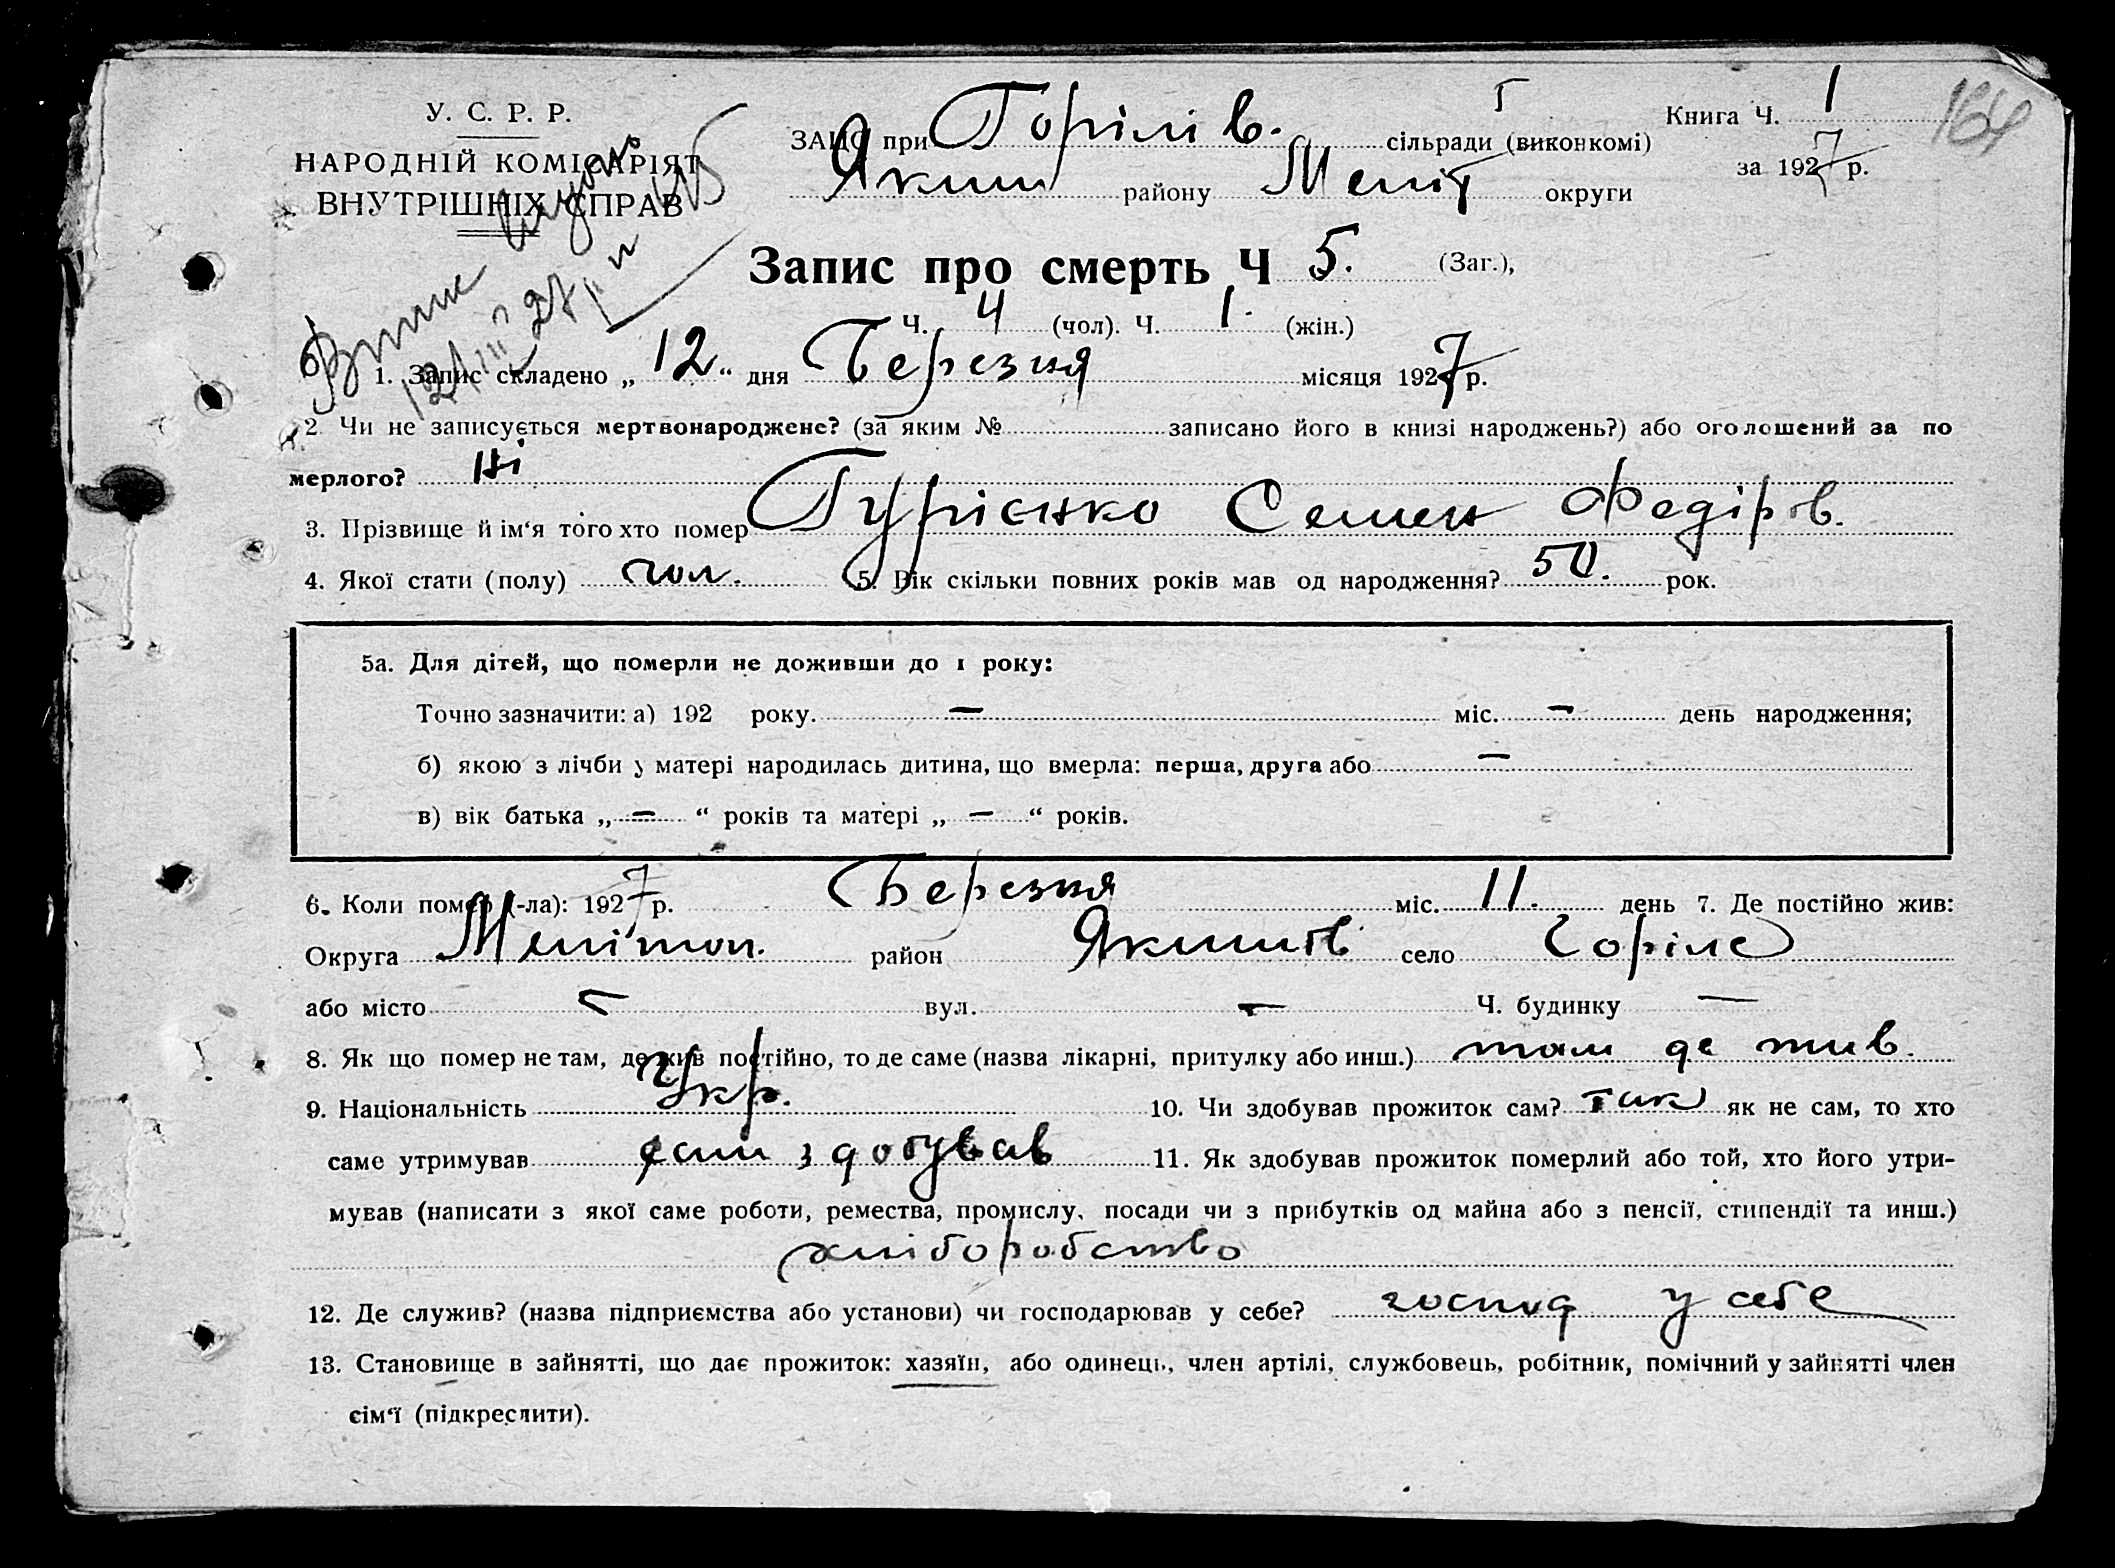 У. С. Р. Р.
НАРОДНІЙ КОМІСАРІЯТ
ВНУТРІШНІХ СПРАВ
ЗАЦС при Горілів. сільради (виконкомі)
Яким району Меліт округи
Книга Ч. 1
за 1927 р.
164
Запис про смерть Ч 5. (Заг.),
Ч. 4 (чол). Ч. 1. (жін.)
1. Запис складено „ 12 “ дня Березня місяця 1927 р.
2. Чи не записується мертвонароджене? (за яким № записано його в книзі народжень?) або оголошений за по
мерлого? Ні
3. Прізвище й ім‘я того хто помер Гурієнко Семен Федіров.
4. Якої стати (полу) чол. 5. Вік скільки повних років мав од народження? 50. рок.
5а. Для дітей, що померли не доживши до 1 року:
Точно зазначити: а) 192 року. — міс. — день народження;
б) якою з лічби у матері народилась дитина, що вмерла: перша, друга або —
в) вік батька „ — “ років та матері „ — “ років.
6. Коли помер (-ла): 1927 р. Березня міс. 11. день 7. Де постійно жив:
Округа Мелітоп. район Якимів село Горіле
або місто — вул. — Ч. будинку —
8. Як що помер не там, де жив постійно, то де саме (назва лікарні, притулку або инш.) там де жив.
9. Національність Укр. 10. Чи здобував прожиток сам? так як не сам, то хто
саме утримував сам здобував 11. Як здобував прожиток померлий або той, хто його утри-
мував (написати з якої саме роботи, ремества, промислу, посади чи з прибутків од майна або з пенсії, стипендії та инш.)
хліборобство
12. Де служив? (назва підприємства або установи) чи господарював у себе? господ у себе
13. Становище в зайнятті, що дає прожиток: хазяїн, або одинець, член артілі, службовець, робітник, помічний у зайнятті член
сім‘ї (підкреслити).